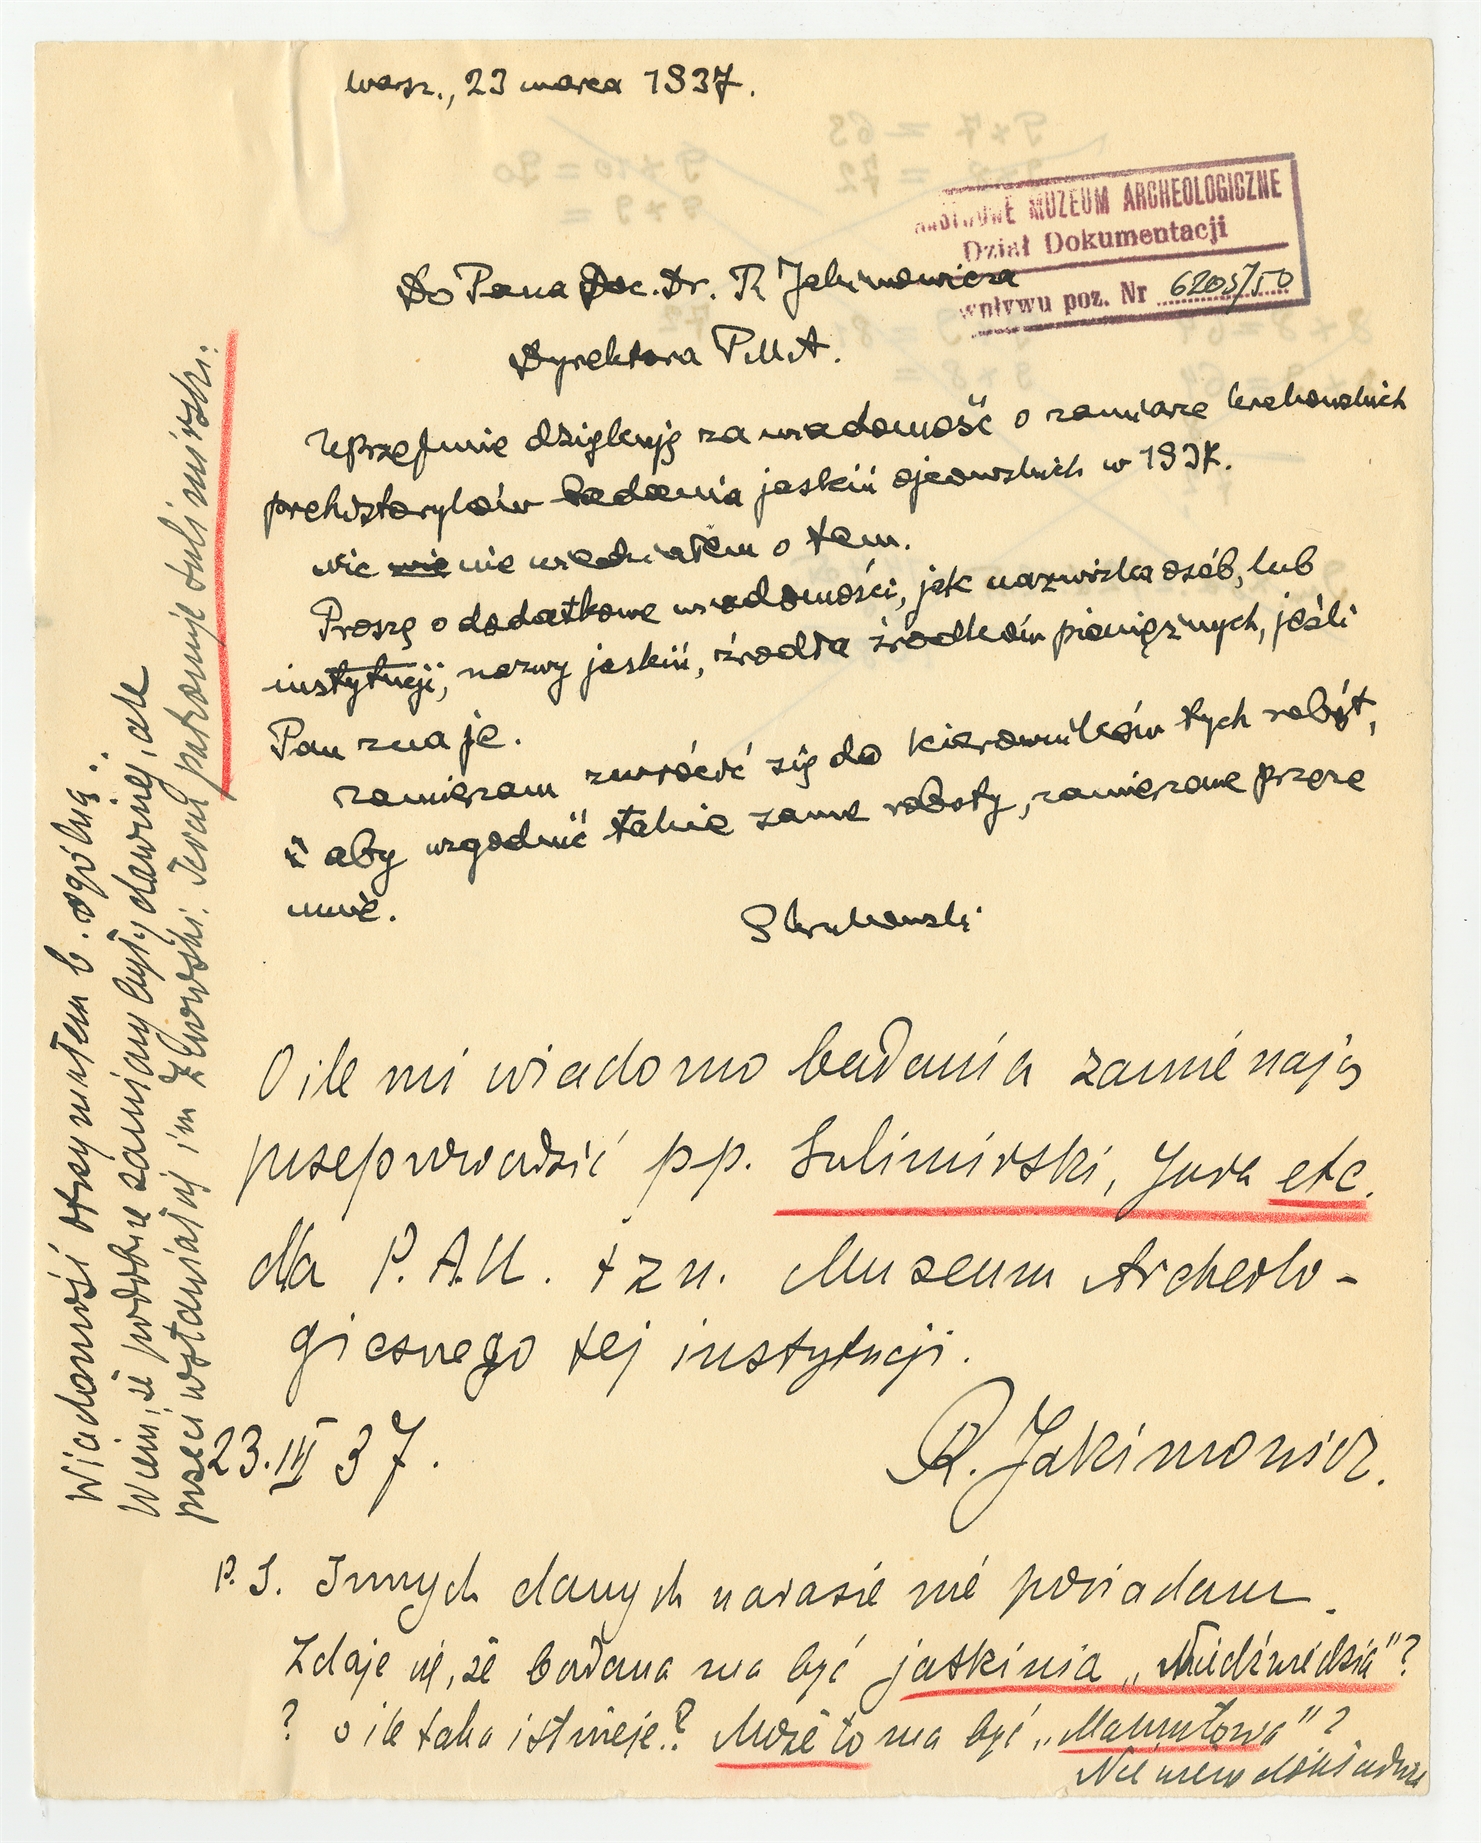 Warsz., 23 marca 1937.
MUZEUM ARCHEOLOGICZNE
Dział Dokumentacji
wpływu poz. Nr 6205/50
Do Pana Doc. Dr. R Jakimowicza
Dyrektora P.M.A.
Uprzejmie dziękuję za wiadomość o zamiarze krakowskich
prehistoryków badania jaskiń ojcowskich w 193K.
nic nie nie wiedziałem o tem.
Proszę o dodatkowe wiadomości, jak nazwiska osób, lub
instytucji, nazwy jaskiń, źródła środków pieniężnych, jeśli
Pan zna je.
Zamierzam zwrócić się do kierowników tych robót,
aby uzgodnić takie same roboty, zamierzone przeze
mnie.
S Krukowski
O ile mi wiadomo badania zamierzają
przeprowadzić pp. Sulimirski, Jura etc.
dla P.A.U. tzn. Muzeum Archeolo-
gicznego tej instytucji.
23.III 37.
R. Jakimowicz.
P.S. Innych danych narazie nie posiadam.
Zdaje się, że badana ma być jaskinia „Niedźwiedzia"?
? o ile taka istnieje? Może to ma być „Mamutowa"?
Nie wiem
Wiadomość otrzymałem b. ogólną.
Wiem, że podobne zamiary były dawniej, ale
przeciwstawiał się im Żurowski. Teraz patronuje Sulimirski.
9×7 = 63
= 72
9×10=90
9×9 =
8×8=64